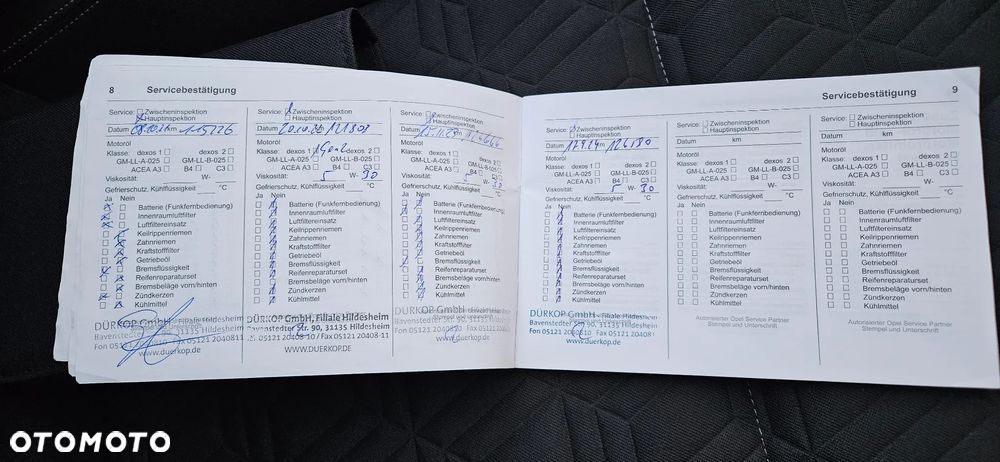 8 Servicebestätigung
Service: Zwischeninspektion
Hauptinspektion
Datum km 115226
Motoröl
Klasse: dexos 1 dexos 2
GM-LL-A-025 GM-LL-B-025
ACEA A3 B4 C3
Viskosität: W-
Gefrierschutz, Kühlflüssigkeit °C
Ja Nein
Batterie (Funkfernbedienung)
Innenraumluftfilter
Luftfiltereinsatz
Keilrippenriemen
Zahnriemen
Kraftstofffilter
Getriebeöl
Bremsflüssigkeit
Reifenreparaturset
Bremsbeläge vorn/hinten
Zündkerzen
Kühlmittel
DÜRKOP GmbH, Filiale Hildesheim
Bavenstedter Str. 90, 31135 Hildesheim
Fon 05121 20408-10 Fax 05121 20408-11
www.duerkop.de
Service: Zwischeninspektion
Hauptinspektion
Datum km 121308
Motoröl
Klasse: dexos 1 dexos 2
GM-LL-A-025 GM-LL-B-025
ACEA A3 B4 C3
Viskosität: 5 W- 30
Gefrierschutz, Kühlflüssigkeit °C
Ja Nein
Batterie (Funkfernbedienung)
Innenraumluftfilter
Luftfiltereinsatz
Keilrippenriemen
Zahnriemen
Kraftstofffilter
Getriebeöl
Bremsflüssigkeit
Reifenreparaturset
Bremsbeläge vorn/hinten
Zündkerzen
Kühlmittel
DÜRKOP GmbH, Filiale Hildesheim
Bavenstedter Str. 90, 31135 Hildesheim
Fon 05121 20408-10 Fax 05121 20408-11
WWW.DUERKOP.DE
Service: Zwischeninspektion
Hauptinspektion
Datum km
Motoröl
Klasse: dexos 1 dexos 2
GM-LL-A-025 GM-LL-B-025
ACEA A3 B4 C3
Viskosität: 5 W- 30
Gefrierschutz, Kühlflüssigkeit °C
Ja Nein
Batterie (Funkfernbedienung)
Innenraumluftfilter
Luftfiltereinsatz
Keilrippenriemen
Zahnriemen
Kraftstofffilter
Getriebeöl
Bremsflüssigkeit
Reifenreparaturset
Bremsbeläge vorn/hinten
Zündkerzen
Kühlmittel
DÜRKOP GmbH, Filiale Hildesheim
Bavenstedter Str. 90, 31135 Hildesheim
Fon 05121 Fax 05121 20408-11
www.duerkop.de
Servicebestätigung 9
Service: Zwischeninspektion
Hauptinspektion
Datum km 126130
Motoröl
Klasse: dexos 1 dexos 2
GM-LL-A-025 GM-LL-B-025
ACEA A3 B4 C3
Viskosität: 5 W- 30
Gefrierschutz, Kühlflüssigkeit °C
Ja Nein
Batterie (Funkfernbedienung)
Innenraumluftfilter
Luftfiltereinsatz
Keilrippenriemen
Zahnriemen
Kraftstofffilter
Getriebeöl
Bremsflüssigkeit
Reifenreparaturset
Bremsbeläge vorn/hinten
Zündkerzen
Kühlmittel
DÜRKOP GmbH
Bavenstedter Str. 90, 31135 Hildesheim
Fon 05121 Fax 05121 20408-11
www.duerkop.de
Service: Zwischeninspektion
Hauptinspektion
Datum km
Motoröl
Klasse: dexos 1 dexos 2
GM-LL-A-025 GM-LL-B-025
ACEA A3 B4 C3
Viskosität: W-
Gefrierschutz, Kühlflüssigkeit °C
Ja Nein
Batterie (Funkfernbedienung)
Innenraumluftfilter
Luftfiltereinsatz
Keilrippenriemen
Zahnriemen
Kraftstofffilter
Getriebeöl
Bremsflüssigkeit
Reifenreparaturset
Bremsbeläge vorn/hinten
Zündkerzen
Kühlmittel
Autorisierter Opel Service Partner
Stempel und Unterschrift
Service: Zwischeninspektion
Hauptinspektion
Datum km
Motoröl
Klasse: dexos 1 dexos 2
GM-LL-A-025 GM-LL-B-025
ACEA A3 B4 C3
Viskosität: W-
Gefrierschutz, Kühlflüssigkeit °C
Ja Nein
Batterie (Funkfernbedienung)
Innenraumluftfilter
Luftfiltereinsatz
Keilrippenriemen
Zahnriemen
Kraftstofffilter
Getriebeöl
Bremsflüssigkeit
Reifenreparaturset
Bremsbeläge vorn/hinten
Zündkerzen
Kühlmittel
Autorisierter Opel Service Partner
Stempel und Unterschrift
OTOMOTO